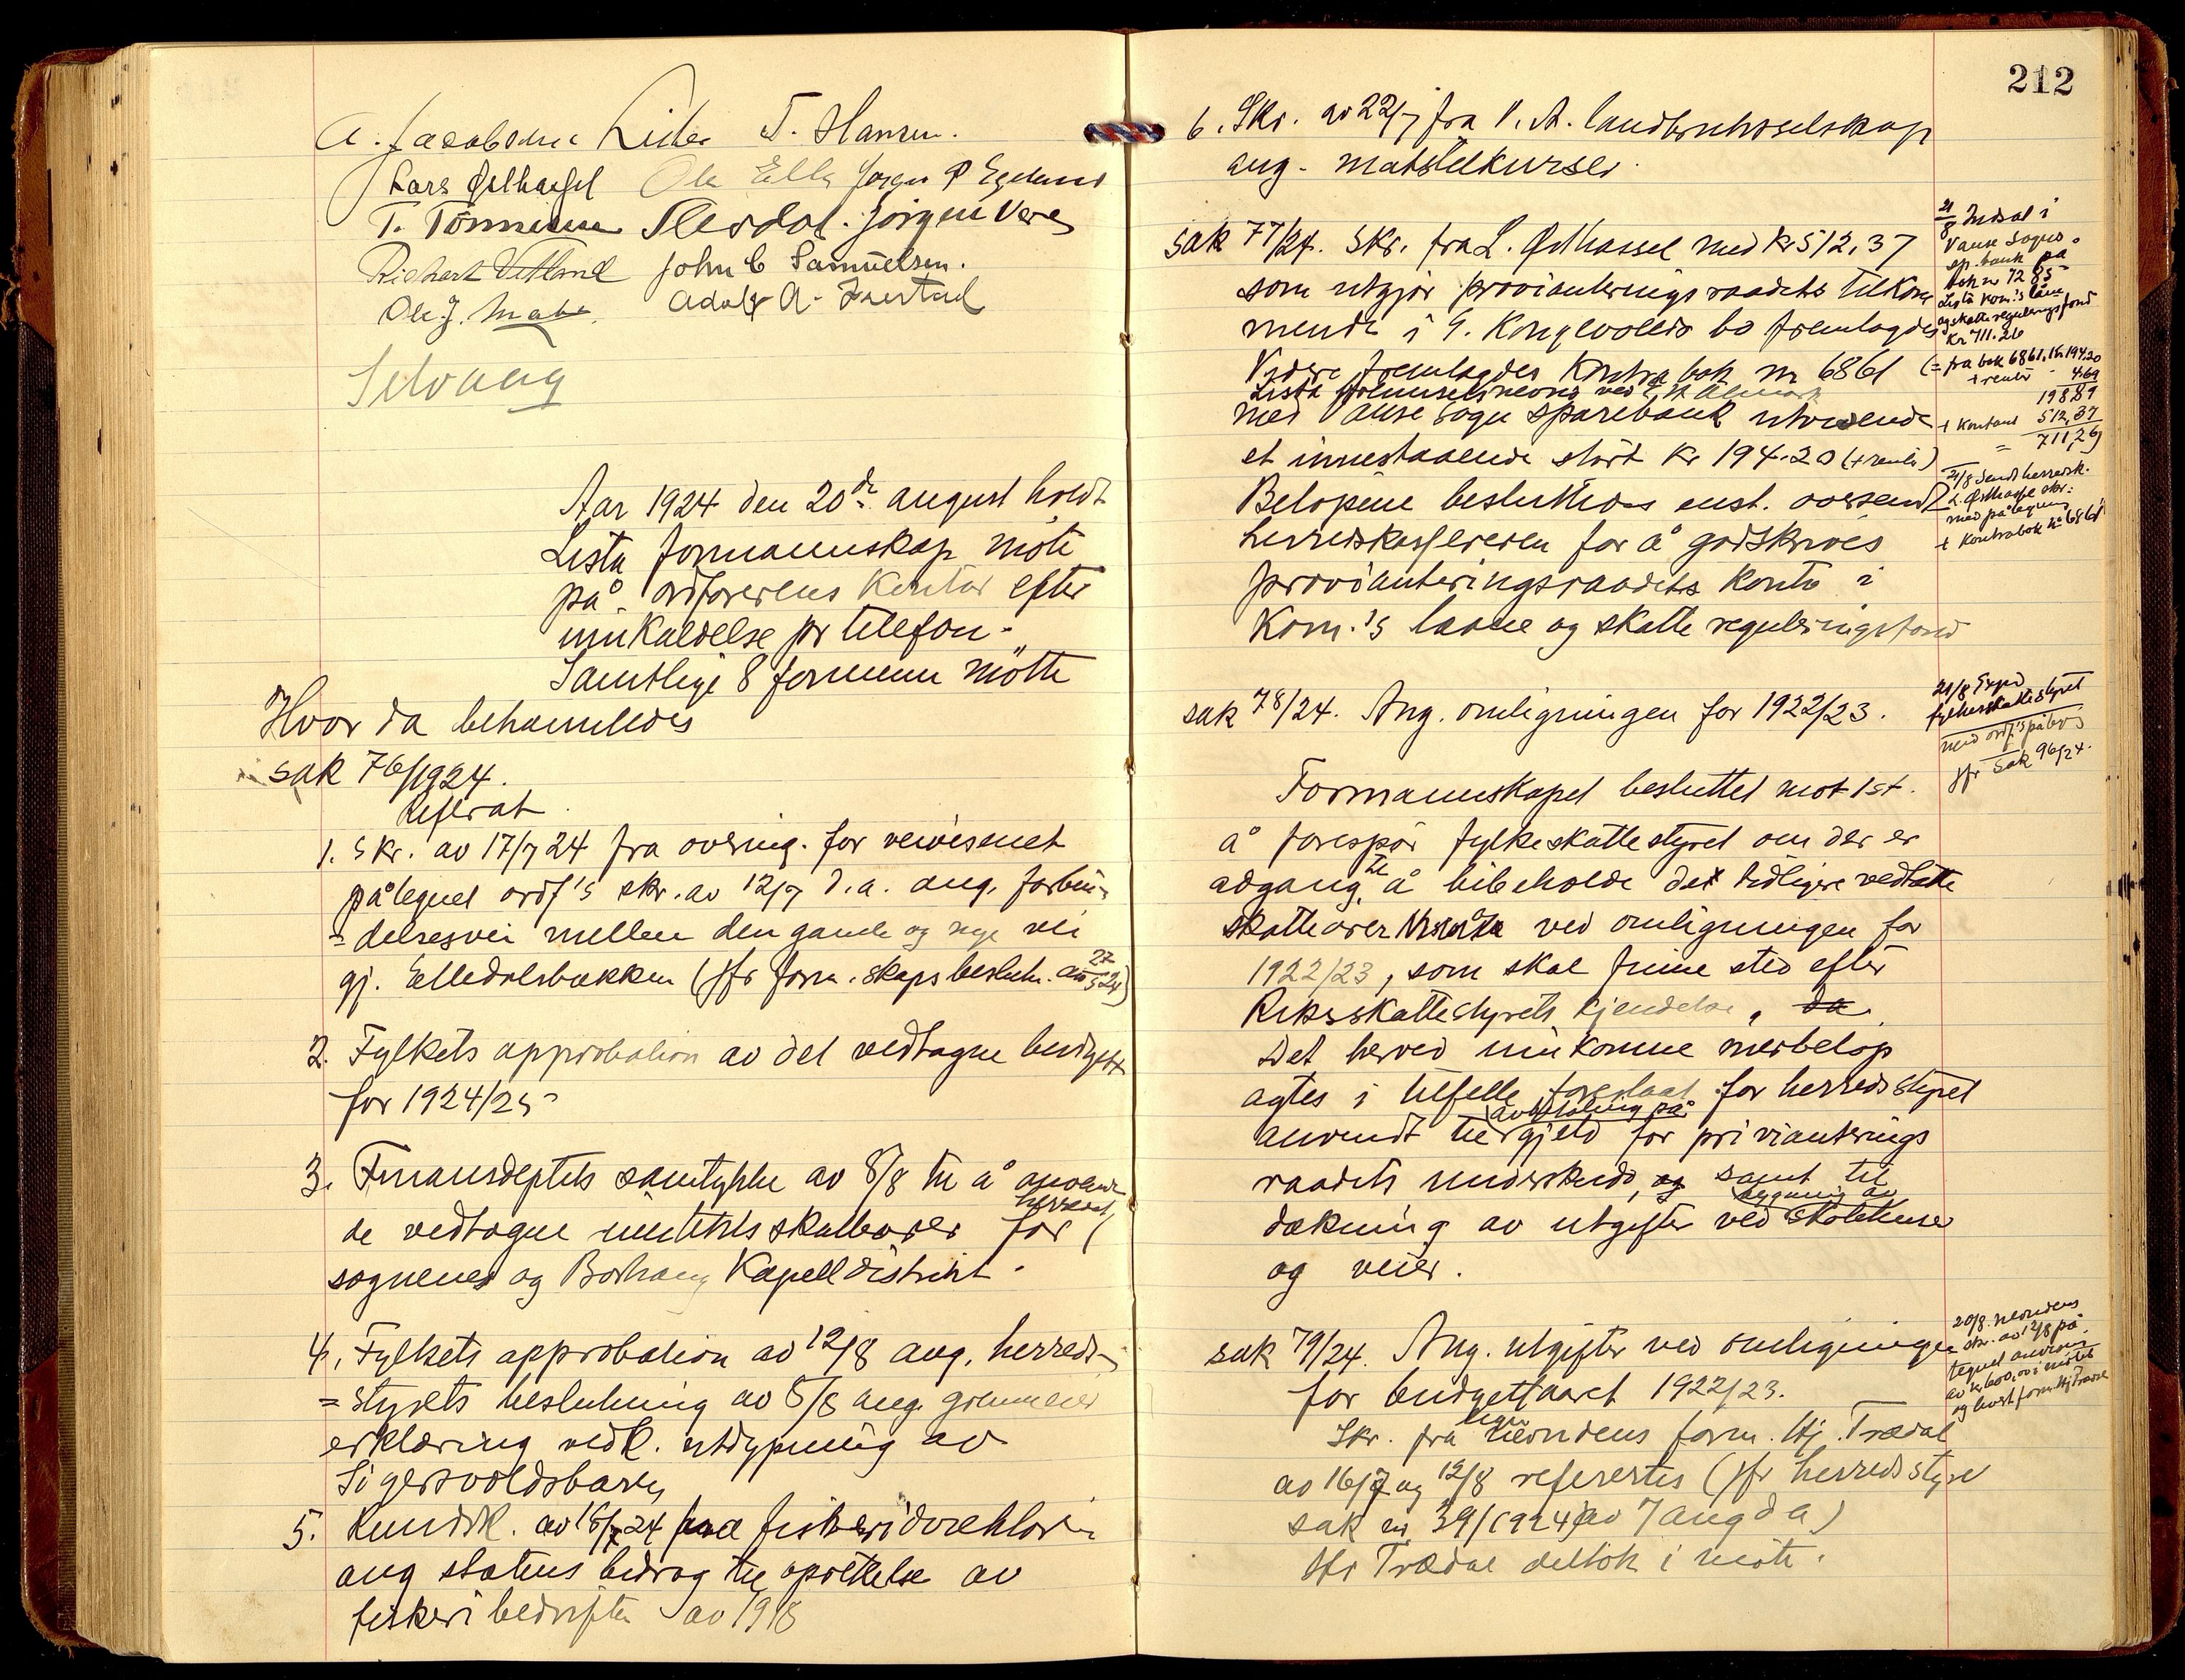 A. Jacobsen Lista T. Hansen.
Lars Østhassel Ole Elle Jørgen P Egeland
T. Tönnessen Meldal. Jörgen Vere
Richart Vatland John C Samuelsen.
Ole J. Adolf A.
Selvaag
Aar 1924 den 20de august holdt
Lista formannskap möte
på ordforerens Kontor efter
innkaldelse pr telefon.
Samtlige 8 formenn mötte
Hvor da behannledes
sak 76/1924.
Referat
1. Skr. av 17/7 24 fra overing. for veivesenet
påtegnet ordf's skr. av 12/7 d.a. ang. forbin-
= delsesvei mellem den gamle og nye vei
gj. Elledalsbakken (jfr form.skaps beslutn. av 27/5 24)
2. Fylkets approbation av det vedtagne budgett
for 1924/25
3. Finansdeptets samtykke av 8/8 til å anvende
herredet,
de vedtagne skatteører for (
sognenes og Borhaug Kapelldistrikt.
4. Fylkets approbation av 12/8 ang. herreds-
= styrets beslutning av 5/8 ang.
erklæring vedk. utdypning av
Sigersvoldsbaren
5. Rundsk. av 15/7 24 fra fiskeridirektören
ang statens bidrag til oprettelse av
fiskeribedrifter av 1918
212
6. Skr. av 22/7 fra V. A. landbruksselskap
ang. matstelkurser.
sak 77/24. Skr. fra L. Østhassel med kr 512,37
som utgjör provianteringsraadets tilkom
mende i G. Kongevolds bo fremlagdes
Videre fremlagdes Kontra bok nr 6861
Lista ved
med Vanse sogns sparebank utvisende
et innestaaende stört kr 194.20 (+ renter)
Belöpene besluttedes enst. oversendt
herredskassereren for å godskrives
provianteringsraadets konto i
Kom.'s laane og skatte reguleringsfond
21/8 Indsat i
Vanse Sogns
sp.bank på
bok nr 7285
Lista kom.'s låne
og skattereguleringsfond
Kr 711.26
(= fra bok 6861, kr 194.20
+ renter 4.69
198.89
+ Kontant 512,37
= 711,26)
21/8 Sendt herredsk.
L. Østhassels skr:
med påtegning
+ Kontrabok nr 6861
sak 78/24. Ang. omligningen for 1922/23.
21/8 Exped
fylkesskattestyret
med ordf's påtegn
jfr Sak 96/24.
Formannskapet besluttet mot 1 st.
å forespör fylkeskattestyret om der er
adgang til å bibeholde det tidligere vedtatte
skatteører ved omligningen for
1922/23, som skal finne sted efter
Riksskattestyrets kjendelse, da
Det herved innkomne merbelöp
agtes i tilfelle foreslaat for herredsstyret
avbetaling på
anvendt til gjeld for provianterings
raadets underskudd, og samt til
bygning av
dækning av utgifter ved skolehuse
og veier.
sak 79/24. Ang. utgifter ved omligningen
for budgettaaret 1922/23.
Skr. fra ligningsnevndens form. Hj. Trædal
av 16/7 og 12/8 refererteds (jfr herredsstyre
sak nr 39/1924 av 7 aug d a)
Hr Trædal deltok i möte.
20/8. nevndens
skr. av 12/8 på-
tegnet anvisn
av kr 600,00 i mötet
og levert form Hj Trædal